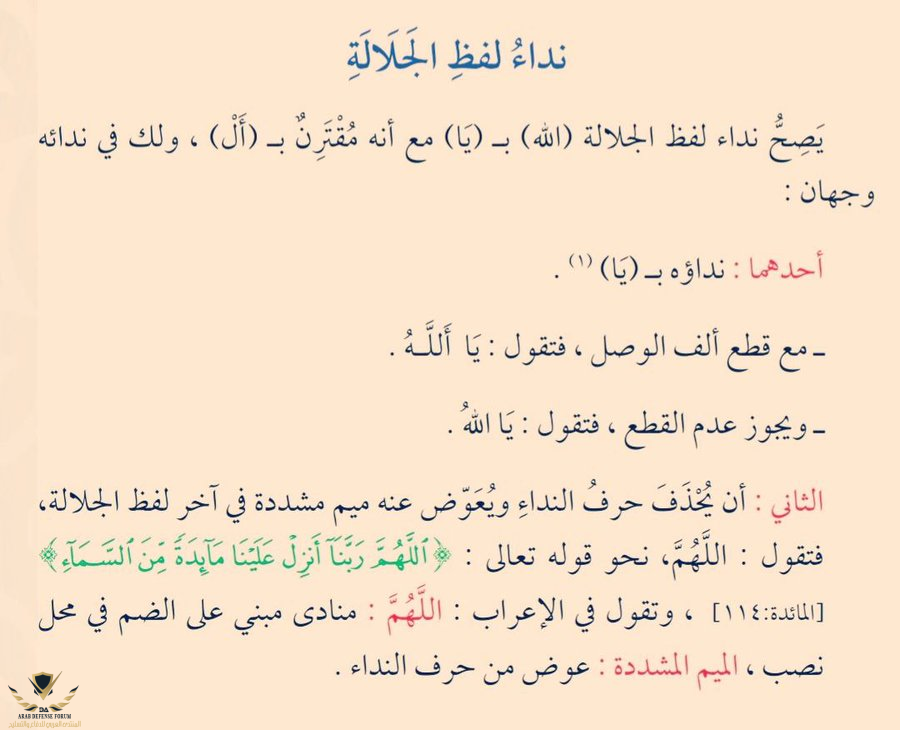 نداءُ لفظِ الجَلَالَةِ
يَصِحُّ نداء لفظ الجلالة (الله) بـ (يَا) مع أنه مُقْتَرِنٌ بـ (أَلْ) ، ولك في ندائه
وجهان :
أحدهما : نداؤه بـ (يَا) (١) .
ـ مع قطع ألف الوصل ، فتقول : يَا أَللَّـهُ .
ـ ويجوز عدم القطع ، فتقول : يَا اللهُ .
الثاني : أن يُحْذَفَ حرفُ النداءِ ويُعَوّض عنه ميم مشددة في آخر لفظ الجلالة،
فتقول : اللَّهُمَّ، نحو قوله تعالى : ﴿ ٱللَّهُمَّ رَبَّنَآ أَنزِلْ عَلَيْنَا مَآئِدَةً مِّنَ ٱلسَّمَآءِ ﴾
[المائدة:١١٤] ، وتقول في الإعراب : اللَّهُمَّ : منادى مبني على الضم في محل
نصب ، الميم المشددة : عوض من حرف النداء .
DA
ARAB DEFENSE FORUM
المنتدى العربي للدفاع والتسليح